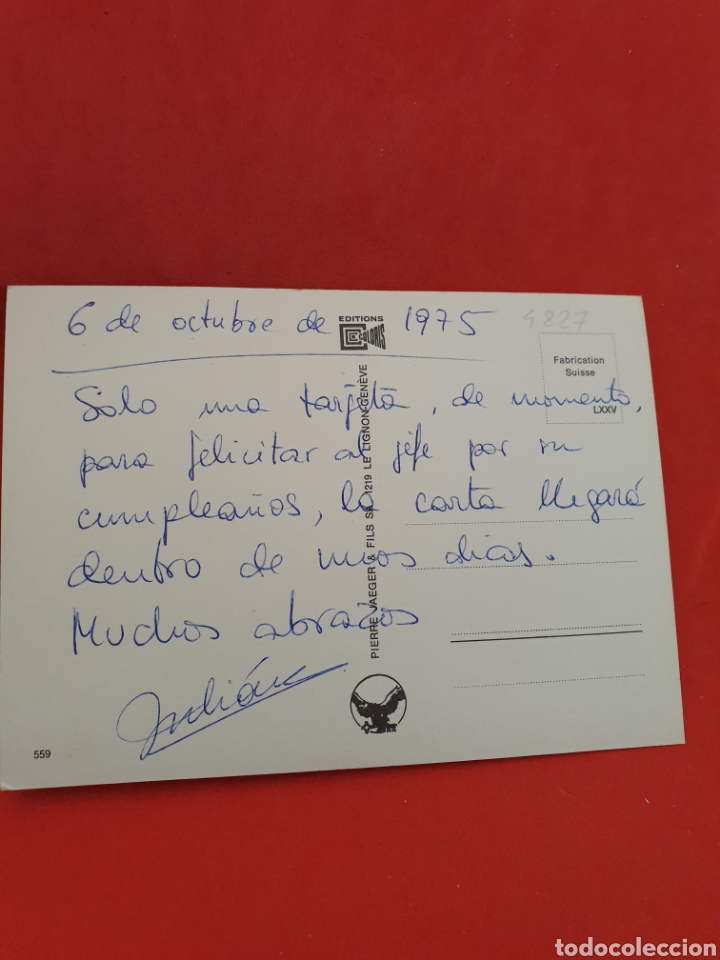 6 de octubre de 1975
4827
EDITIONS
COLORIS
Fabrication
Suisse
LXXV
Solo una tarjeta, de momento,
para felicitar al jefe por su
cumpleaños, la carta llegará
dentro de unos dias.
Muchos abrazos
Julián
PIERRE JAEGER & FILS SA, 1219 LE LIGNON-GENÈVE
559
todocoleccion